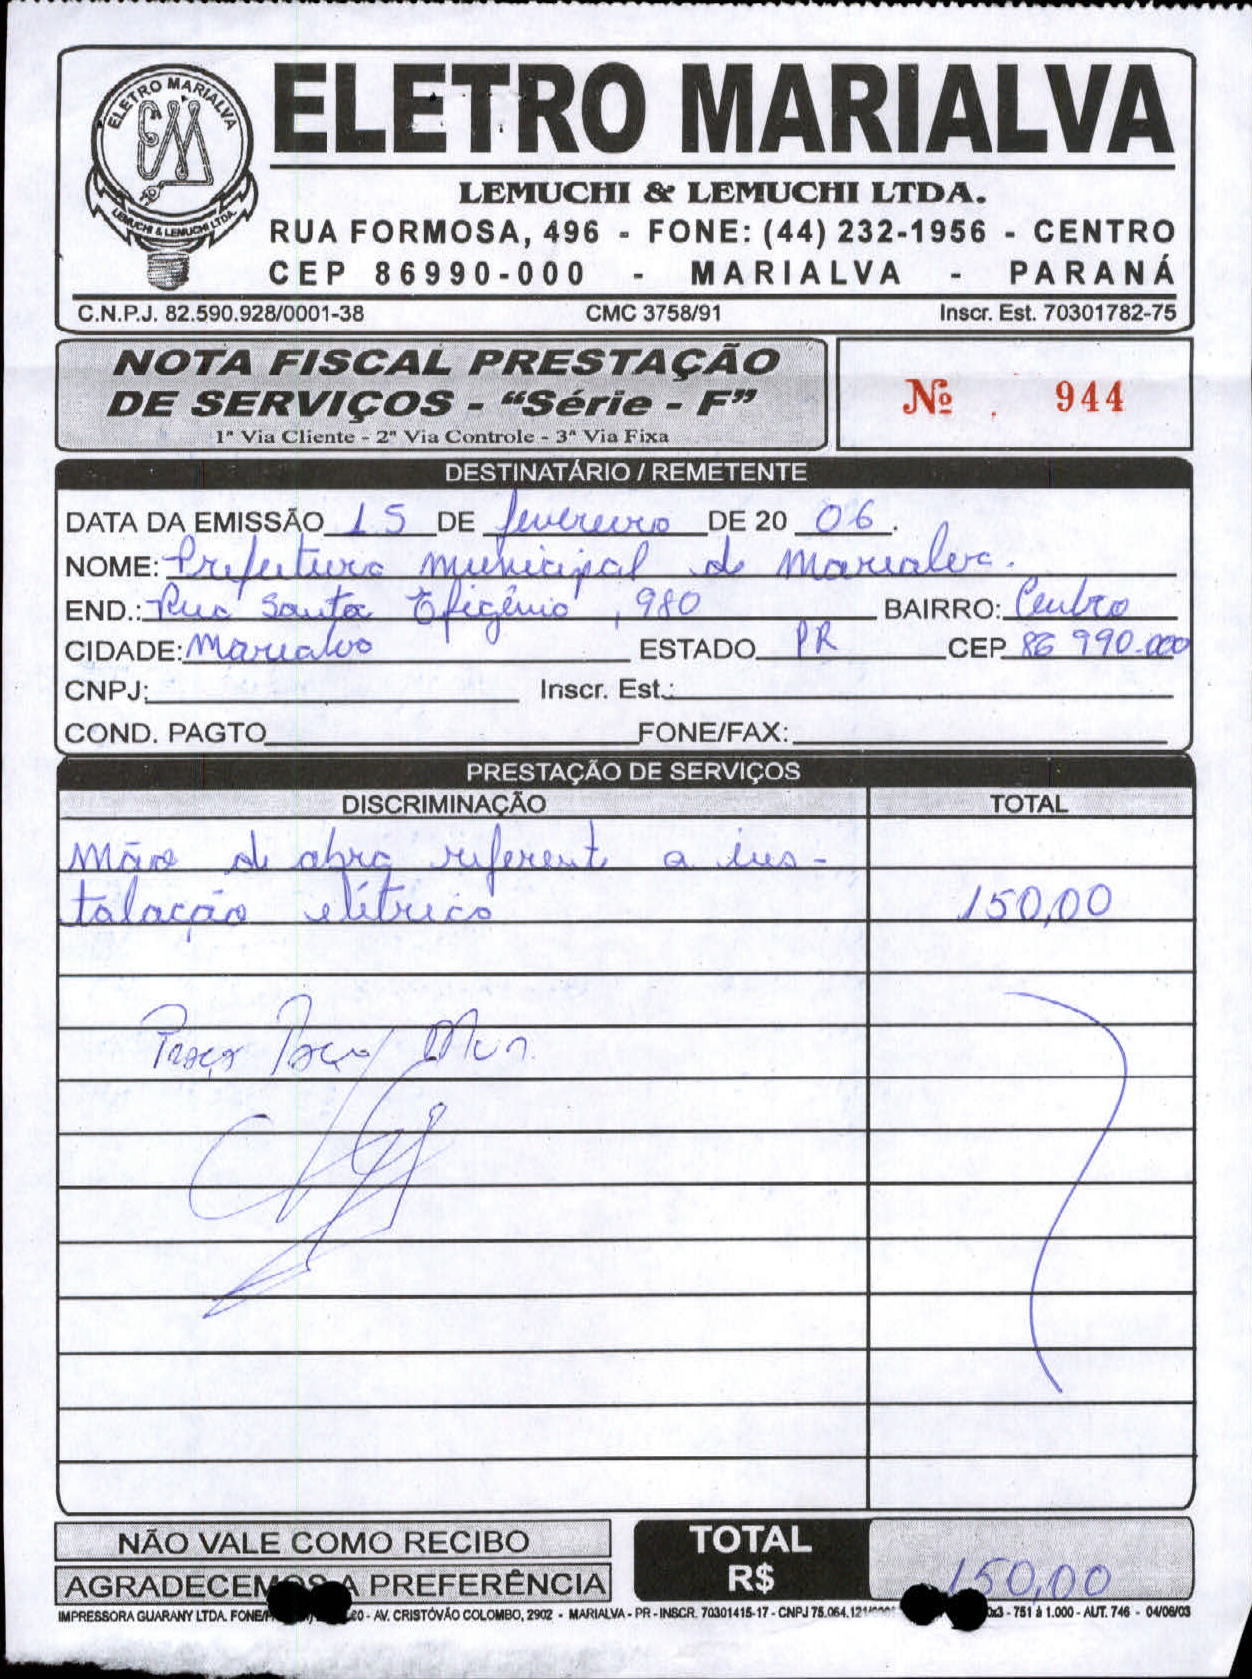 ELETRO MARIALVA
LEMUCHI & LEMUCHI LTDA.
ELETRO MARIALVA
LEMUCHI & LEMUCHI LTDA.
RUA FORMOSA, 496 - FONE: (44) 232-1956 - CENTRO
CEP 86990-000 - MARIALVA - PARANÁ
C.N.P.J. 82.590.928/0001-38 CMC 3758/91 Inscr. Est. 70301782-75
NOTA FISCAL PRESTAÇÃO
DE SERVIÇOS - "Série - F"
1ª Via Cliente - 2ª Via Controle - 3ª Via Fixa
Nº 944
DESTINATÁRIO / REMETENTE
DATA DA EMISSÃO 15 DE fevereiro DE 20 06.
NOME: Prefeitura municipal de Marialva.
END.: Rua Santa Efigênia, 980 BAIRRO: Centro
CIDADE: Marialva ESTADO PR CEP 86 990-000
CNPJ: Inscr. Est.:
COND. PAGTO FONE/FAX:
PRESTAÇÃO DE SERVIÇOS
DISCRIMINAÇÃO TOTAL
Mão de obra referente a ins-
talação elétrica 150,00
Praça Mun.
NÃO VALE COMO RECIBO
AGRADECEMOS A PREFERÊNCIA
TOTAL R$ 150,00
IMPRESSORA GUARANY LTDA. - AV. CRISTÓVÃO COLOMBO, 2902 - MARIALVA - PR - INSCR. 70301415-17 - CNPJ 75.064.121 - 751 à 1.000 - AUT. 746 - 04/06/03